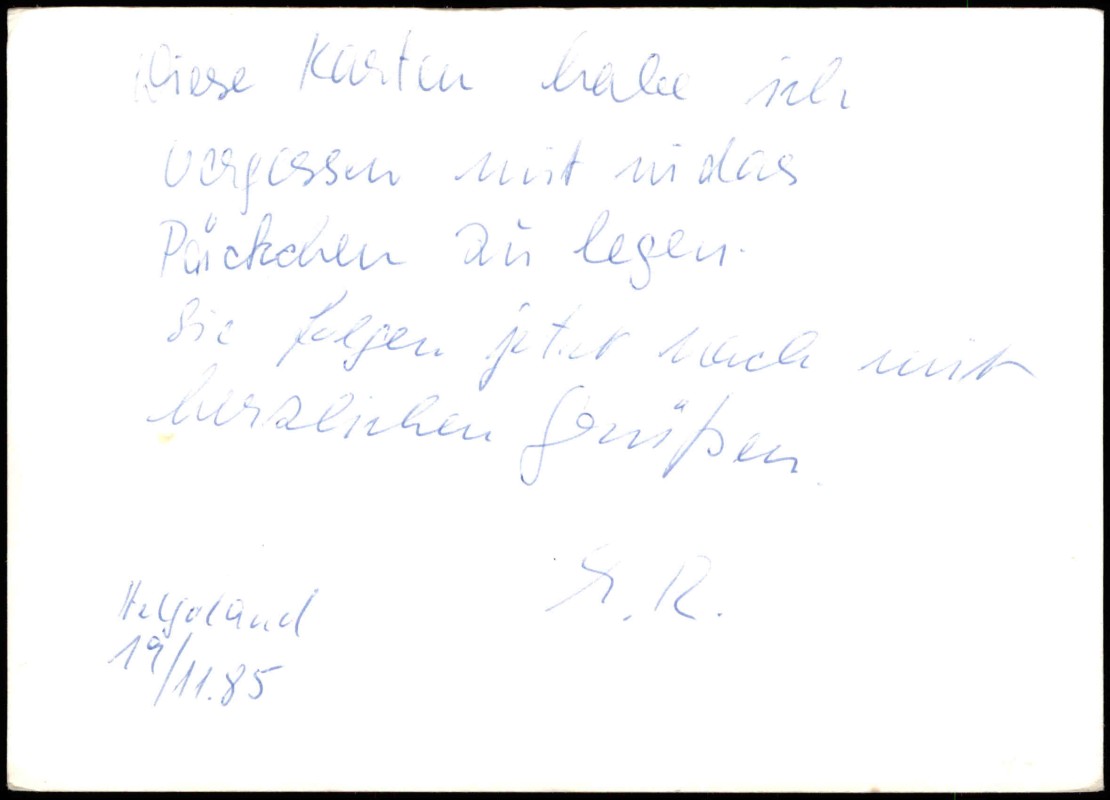 Diese Karten habe ich
vergessen mit in das
Päckchen zu legen.
Sie folgen jetzt nach mit
herzlichen Grüßen.
R.
Helgoland
19/11.85